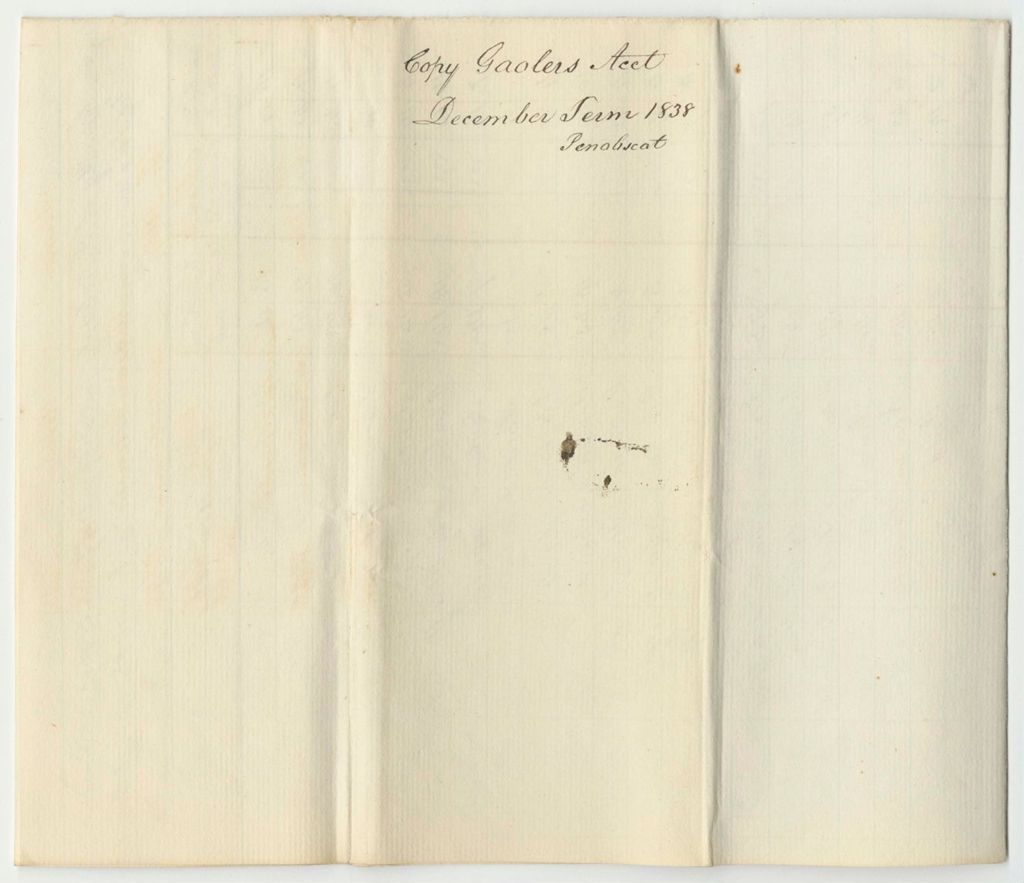 Copy Gaolers Acct
December Term 1838
Penobscot